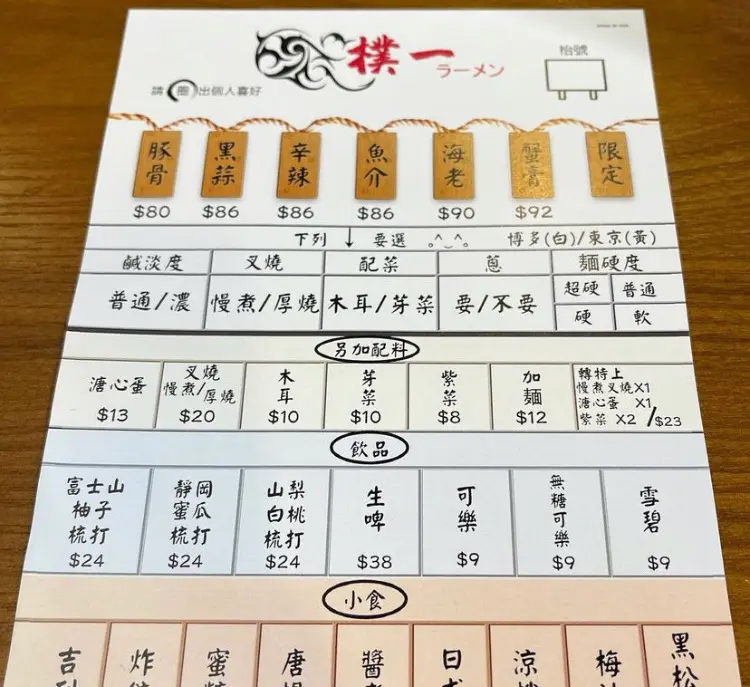 樸一
ラーメン
枱號
請圈出個人喜好
豚骨 黑蒜 辛辣 魚介 海老 蟹膏 限定
$80 $86 $86 $86 $90 $92
下列 ↓ 要選 。^_^。 博多(白)/東京(黃)
鹹淡度 叉燒 配菜 蔥 麵硬度
普通/濃 慢煮/厚燒 木耳/芽菜 要/不要 超硬 普通
硬 軟
另加配料
溏心蛋 $13
叉燒 慢煮/厚燒 $20
木耳 $10
芽菜 $10
紫菜 $8
加麵 $12
轉特上
慢煮叉燒X1
溏心蛋 X1
紫菜 X2 /$23
飲品
富士山柚子梳打 $24
靜岡蜜瓜梳打 $24
山梨白桃梳打 $24
生啤 $38
可樂 $9
無糖可樂 $9
雪碧 $9
小食
吉 炸 蜜 唐 醬 日 涼 梅 黑松